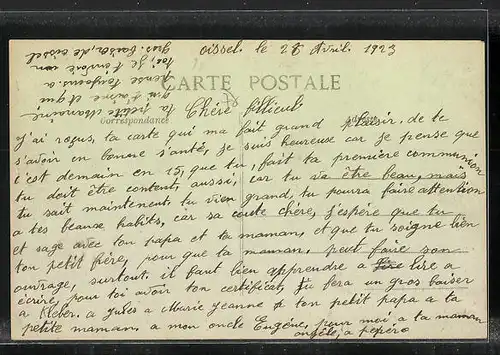 oissel. le 28 Avril. 1923
CARTE POSTALE
Correspondance
Chère
J'ai reçus, la carte qui ma fait grand plaisir. de te
s'avoir en bonne s'anté, je suis heureuse car je pense que
c'est demain en 15, que tu, fait ta première communion
tu doit être content, aussi, car tu va être beau, mais
tu sait maintenent tu vien grand, tu poura faire attention
a tes beause habits, car sa coute chère, j'espére que tu
et sage avec ton papa et ta maman, et que tu soigne bien
ton petit frère, pour que ta maman, peut faire son
ouvrage, surtout, il faut bien apprendre a lire a
écrire, pour toi avoir ton certificat, tu fera un gros baiser
a Kleber. a Jules a Marie Jeanne & ton petit papa a ta
petite maman. a mon oncle Eugène, pour moi a ta maman
angèle, a pépère
ta petite Maman
qui t'aime et qui
pense toujours a
toi, je t'envoie un
gros. baiser, de oissel